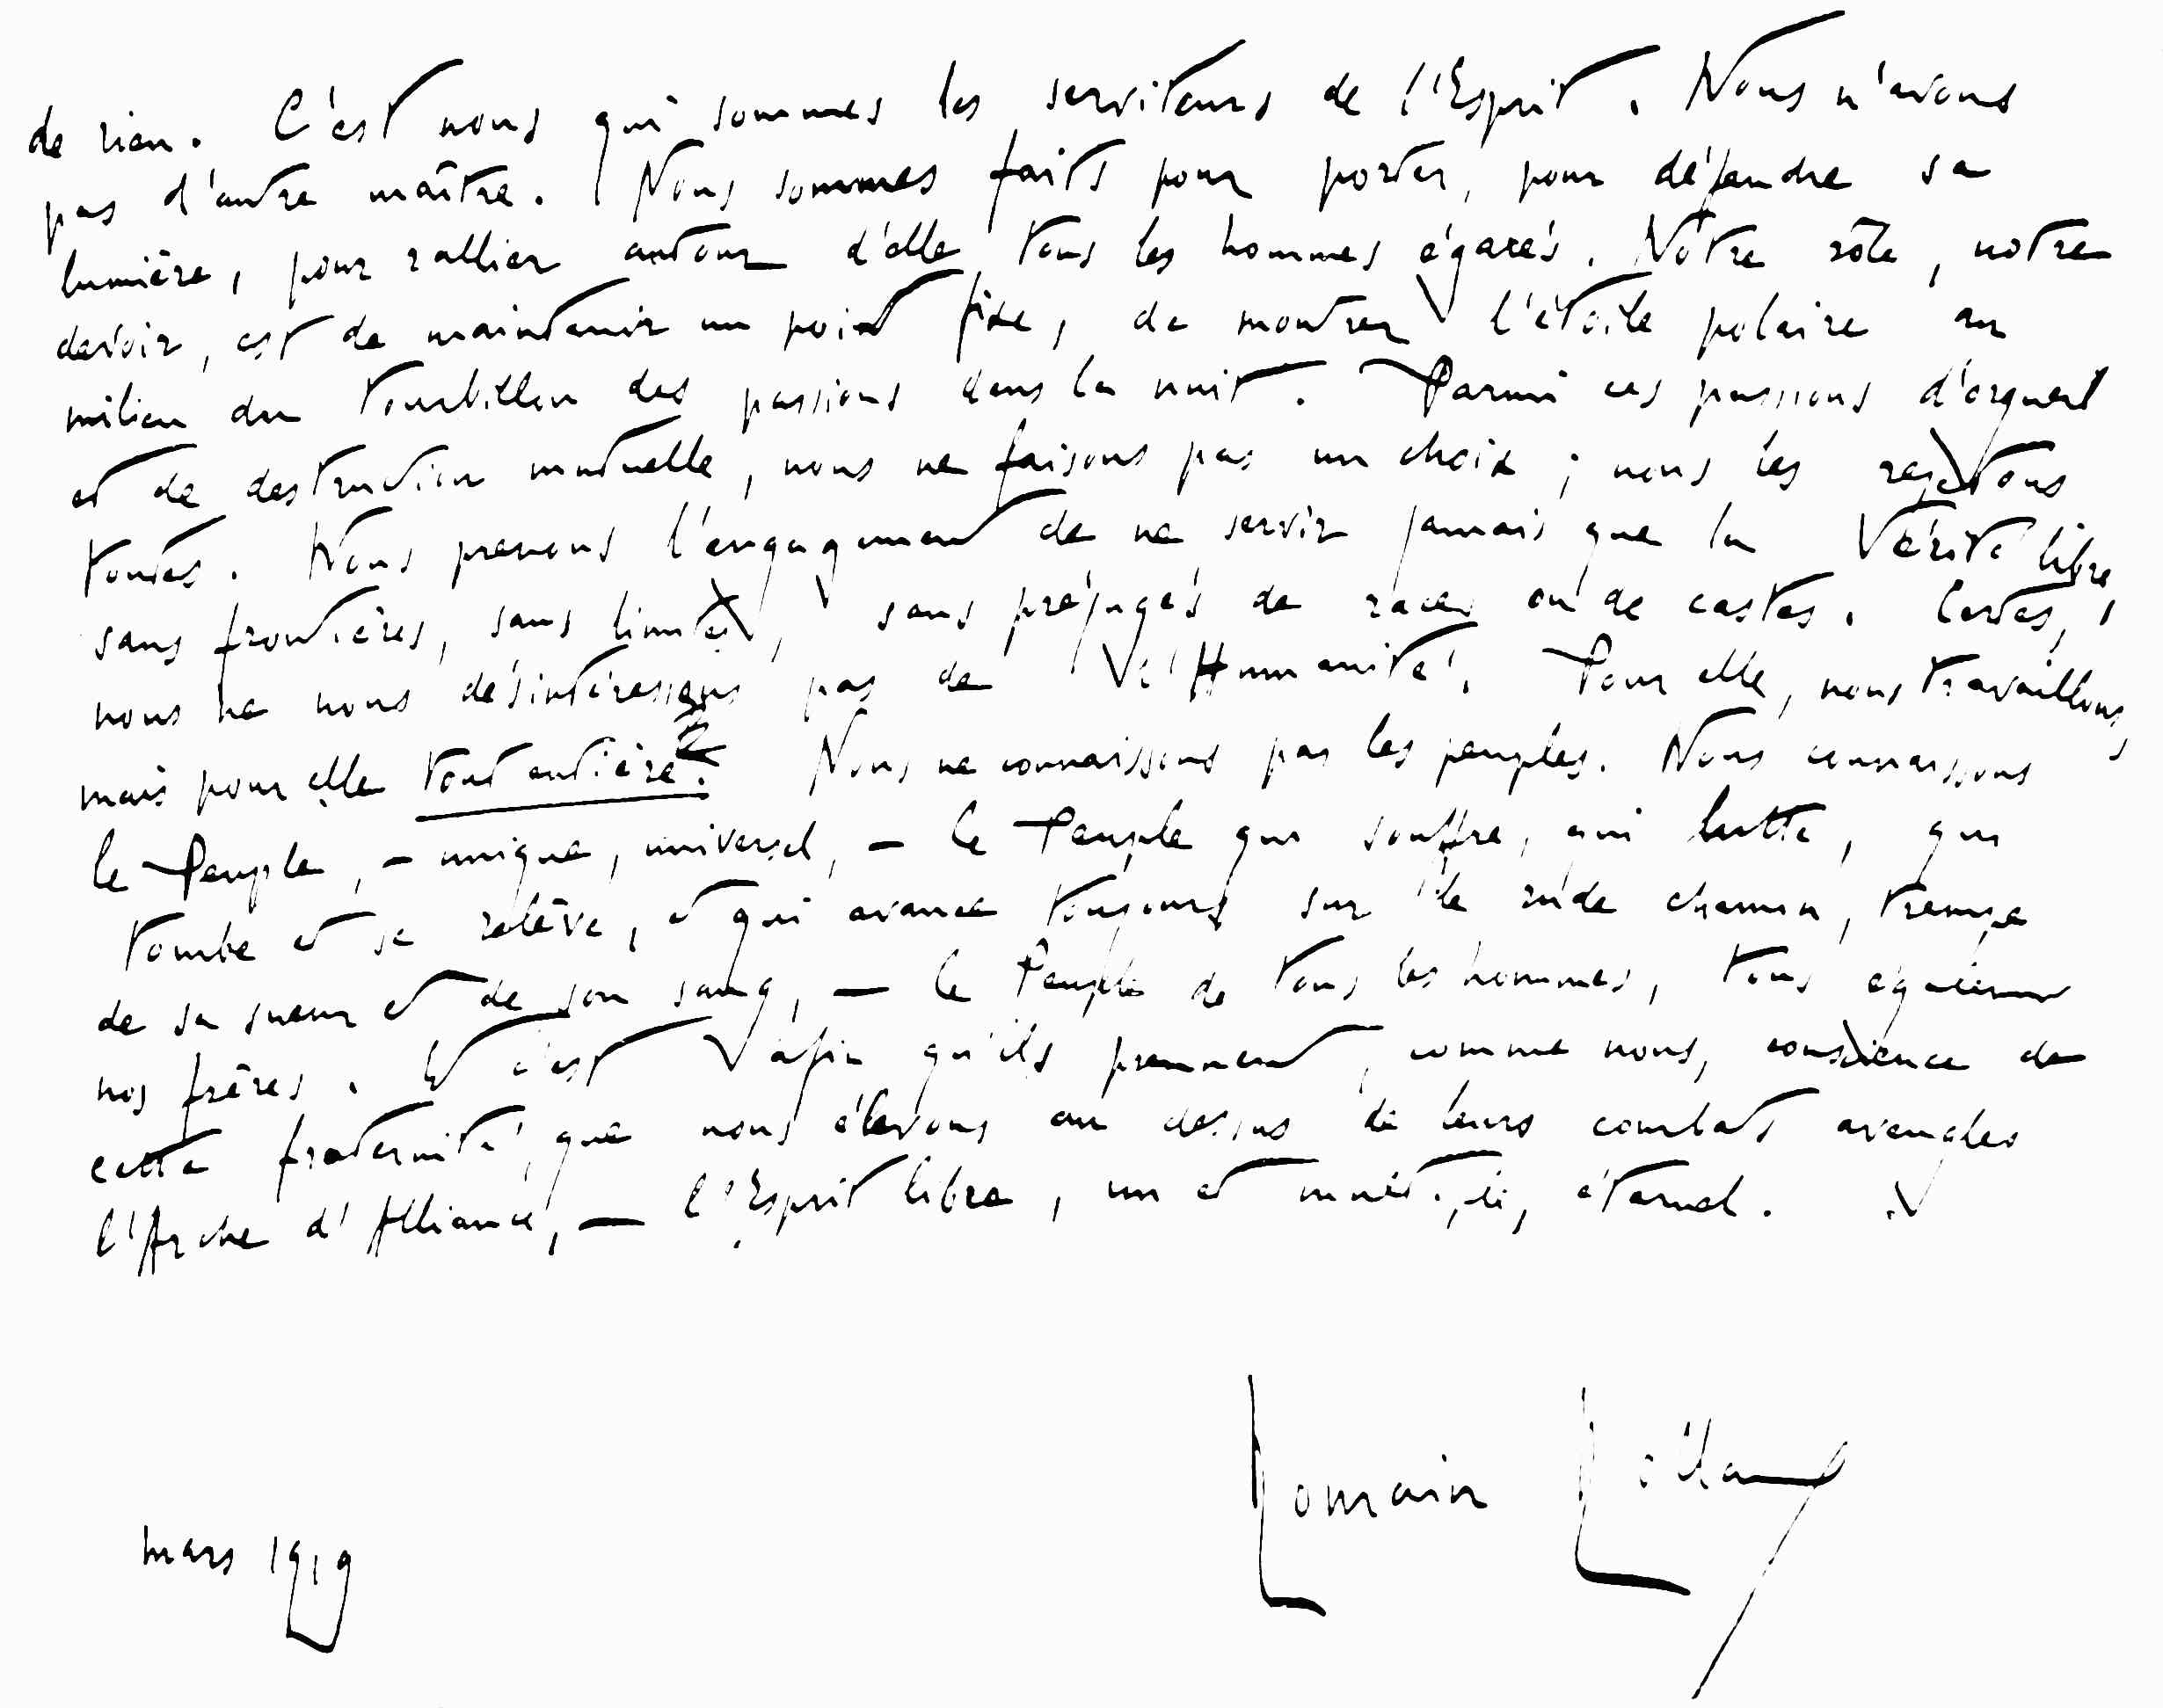 de rien. C'est nous qui sommes les serviteurs de l'Esprit. Nous n'avons
pas d'autre maître. Nous sommes faits pour porter, pour défendre sa
lumière, pour rallier autour d'elle tous les hommes égarés. Notre rôle, notre
devoir, est de maintenir un point fixe, de montrer l'étoile polaire au
milieu du tourbillon des passions dans la nuit. Parmi ces passions d'orgueil
et de destruction mutuelle, nous ne faisons pas un choix ; nous les rejetons
toutes. Nous prenons l'engagement de ne servir jamais que la Vérité libre,
sans frontières, sans limites, sans préjugés de races ou de castes. Certes,
nous ne nous désintéressons pas de l'Humanité. Pour elle, nous travaillons,
mais pour elle tout entière. Nous ne connaissons pas les peuples. Nous connaissons
le Peuple, – unique, universel, – le Peuple qui souffre, qui lutte, qui
tombe et se relève, et qui avance toujours sur le rude chemin, trempé
de sa sueur et de son sang, – le Peuple de tous les hommes, tous également
nos frères. Et c'est afin qu'ils prennent, comme nous, conscience de
cette fraternité, que nous élevons au dessus de leurs combats aveugles
l'Arche d'Alliance, – l'Esprit libre, un et multiple, éternel.
Romain Rolland
mars 1919